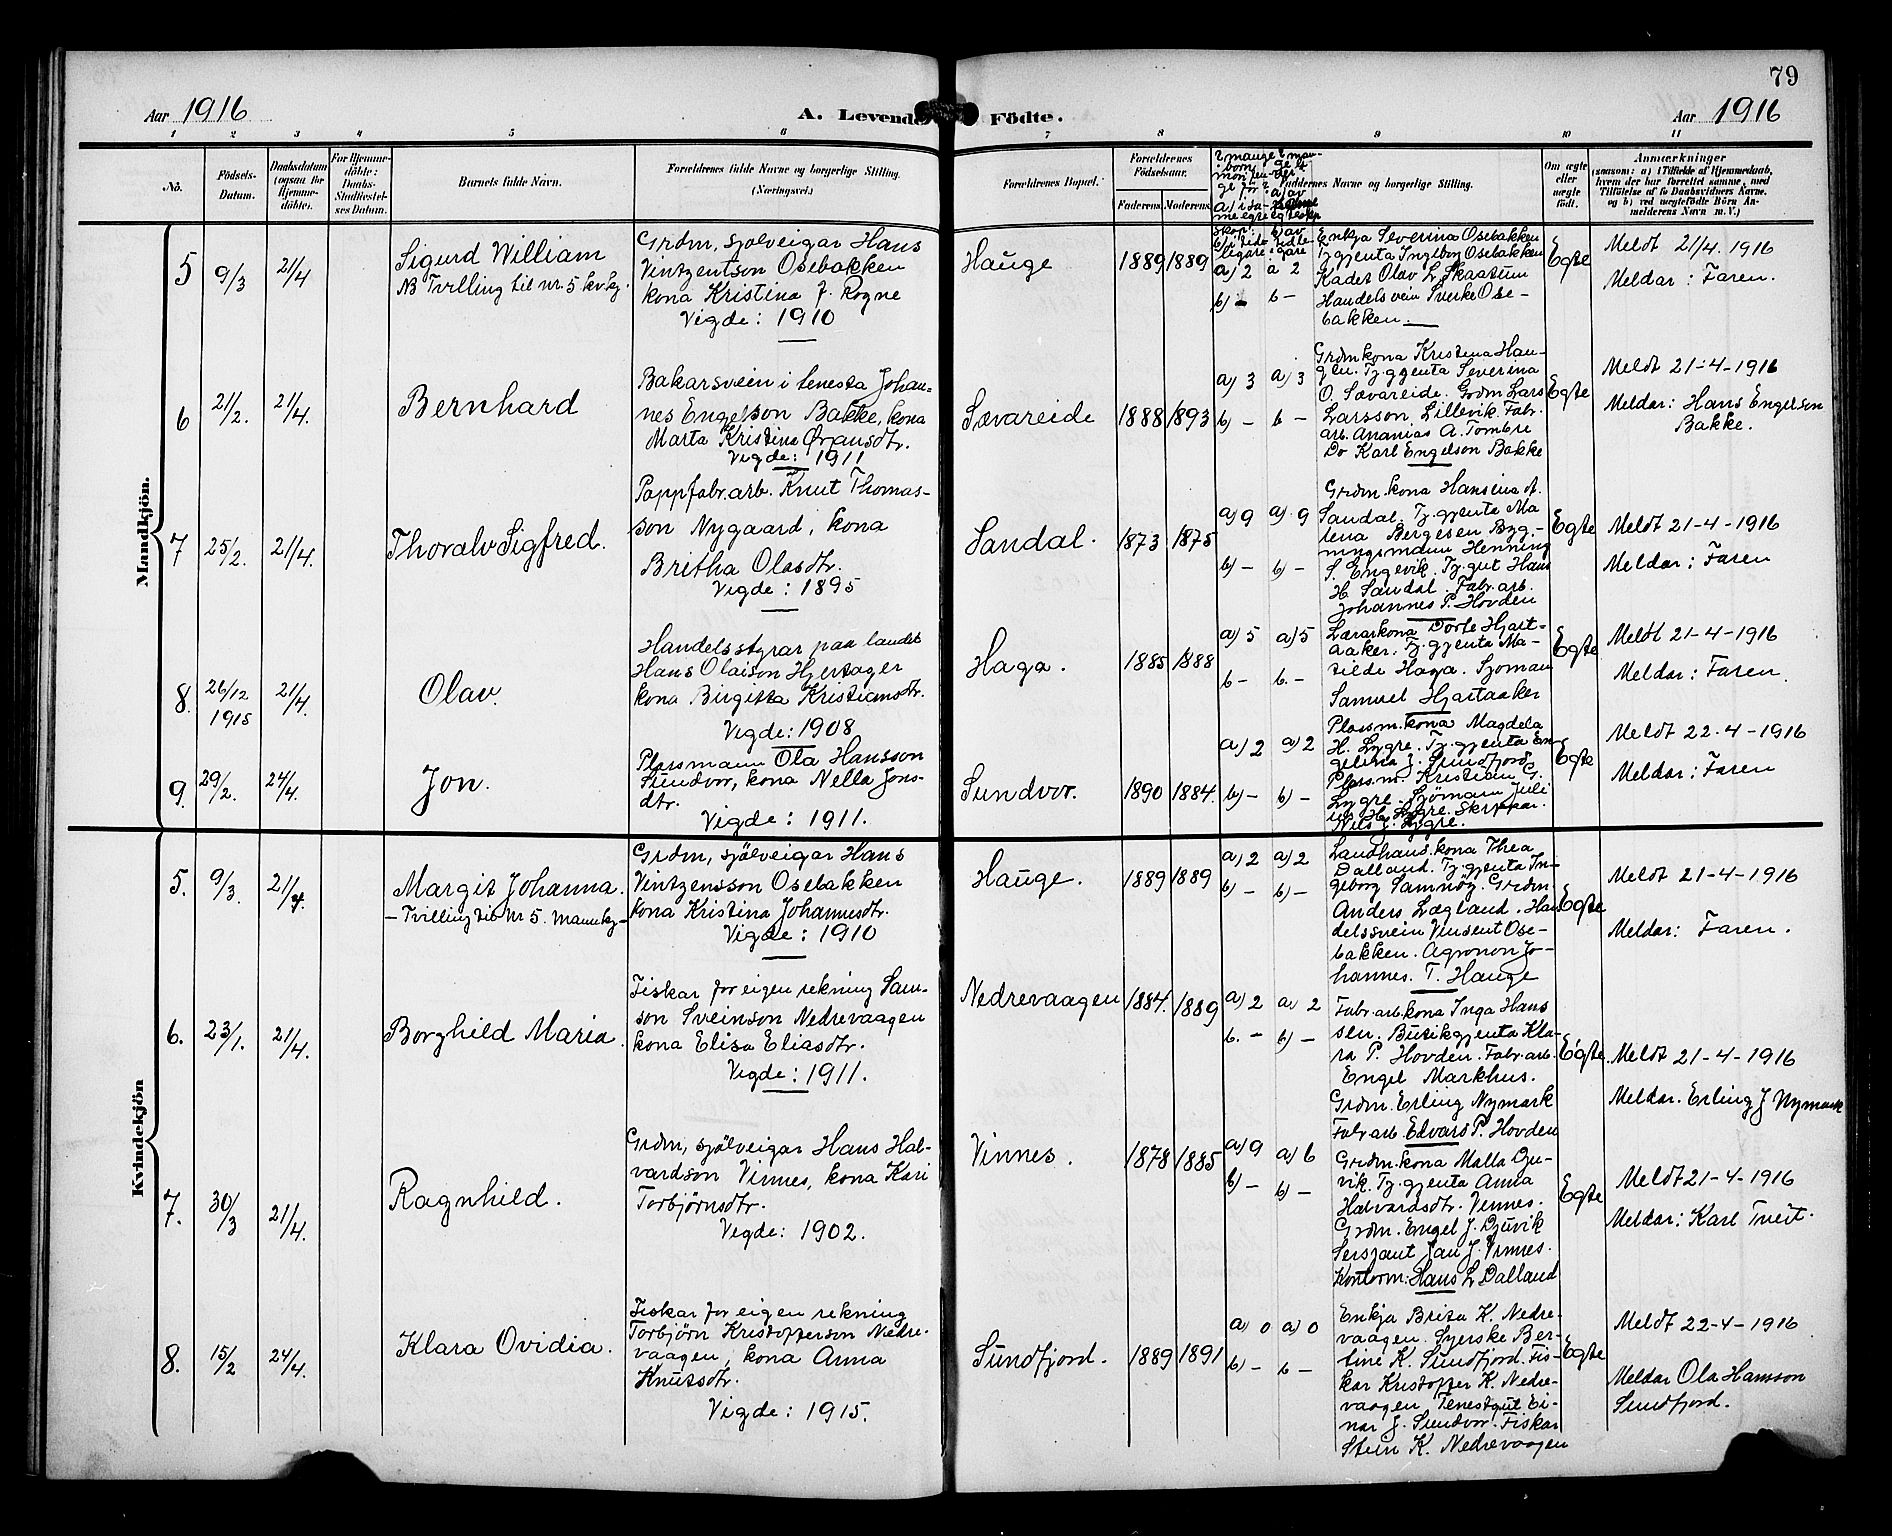 79
Aar 1916
A. Levende Födte.
Aar 1916
1 2 3 4 5 6 7 8 9 10 11
No.
Födsels-Datum.
Daabsdatum (ogsaa for Hjemme-döbte).
For Hjemme-döbte: Daabs-Stadfæstel-ses Datum.
Barnets fulde Navn.
Forældrenes fulde Navne og borgerlige Stilling. (Næringsvei.)
Forældrenes Bopæl.
Forældrenes Födselsaar.
Faderens. Moderens.
Faddernes Navne og borgerlige Stilling.
Om ægte eller uægte födt.
Anmærkninger
(saasom: a) i Tilfælde af Hjemmedaab,
hvem der har forrettet samme, med
Tilföielse af to Daabsvidners Navne,
og b) ved uægtefödte Börn An-
melderens Navn m. V.)
Mandkjön.
5 9/3 21/4
Sigurd William
NB Tvilling til nr. 5 kv.kj.
Grdm, sjølveigar Hans
Vintzentson Osebakken
kona Kristina J. Rogne
Vigde: 1910
Hauge
1889 1889
a) 2 a 2
b) - b -
Enkja Severina Osebakken
Tj.gjenta Ingeborg Osebakken
Kadet Olav L. Skaatun
Handelsvein Sverke Ose-
bakken.
Egte
Meldt 21/4. 1916
Meldar: Faren.
6 21/2. 21/4.
Bernhard
Bakarsvein i tenesta Johan-
nes Engelson Bakke, kona
Marta Kristina Ørjansdtr.
Vigde: 1911
Sævareide
1888 1893
a) 3 a) 3
b) - b -
Grdmkona Kristina Hau-
gen. Tj.gjenta Severina
O. Sævareide. Grdm Lars
Larsson Lillevik. Fabr.
arb. Ananias A. Tombre
Do Karl Engelson Bakke
Egte
Meldt 21-4-1916
Meldar: Hans Engelson
Bakke.
7 25/2. 21/4.
Thoralv Sigfred.
Pappfabr.arb. Knut Thomas-
son Nygaard, kona
Britha Olasdtr.
Vigde: 1895
Sandal.
1873 1875
a) 9 a) 9
b) - b) -
Grdm.kona Hansina
Sandal. Tj.gjenta Ma-
lena Bergesen Byg-
ningsmann Henning
S. Engevik. Tj.gut Hans
H. Sandal. Fabr.arb.
Johannes P. Hovden
Egte
Meldt 21-4-1916
Meldar: Faren
8. 26/12 1915 21/4.
Olav.
Handelsstyrar paa landet
Hans Olaison Hjertager
kona Birgitta Kristiansdtr.
Vigde: 1908
Haga.
1885 1888
a) 5 a) 5
b - b. -
Lærarkona Dorte Hjart-
aaker. Tj.gjenta Ma-
tilde Haga. Sjoman
Samuel Hjartaaker
Egte
Meldt 21-4-1916
Meldar: Faren.
9. 29/2. 24/4.
Jon.
Plassmann Ola Hansson
Sundvor, kona Nella Jons-
dtr.
Vigde: 1911.
Sundvor.
1890 1884.
a) 2 a) 2
b) - b) -
Plassm.kona Magdela
H. Lygre. Tj.gjenta En-
gelina J. Sundfjord
Plassm. Kristian G.
Lygre. Sjömann Juli
us H. Lygre. Skippar.
Nils J. Lygre.
Egte
Meldt 22-4-1916
Meldar: Faren
Kvindekjön
5. 9/3. 21/4.
Margit Johanna.
- Tvilling til Nr 5. Mannkj -
Grdm, själveigar Hans
Vintzensson Osebakken
kona Kristina Johannesdtr.
Vigde: 1910
Hauge.
1889 1889
a) 2 a) 2
b) - b) -
Landhaus.kona Thea
Dalland. Tj.gjenta In-
geborg Samnöy. Grdm.
Anders Lægland. Han
delssvein Vinsent Ose-
bakken. Agronon Jo-
hannes. T. Hauge
Egte
Meldt 21-4-1916
Meldar: Faren.
6. 23/1. 21/4.
Borghild Maria.
Fiskar for eigen rekning Sam-
son Sveinson Nedrevaagen
kona Elisa Eliasdtr.
Vigde: 1911.
Nedrevaagen
1884. 1889
a) 2 a) 2
b. - b) -
Fabr.arb.kona Inga Hans
sen. Butikgjenta Kla-
ra P. Hovden. Fabr.arb.
Engel Markhus.
Grdm. Erling Nymark
Fabr.arb. Edvart P. Hovden
Egte.
Meldt 21-4-1916
Meldar. Erling J Nymark
7. 30/3 21/4.
Ragnhild.
Grdm, själveigar Hans Hal-
vardson Vinnes, kona Kari
Torbjørnsdtr.
Vigde: 1902.
Vinnes.
1878 1885
a) 9 a) 6
b) - b) -
Grdm.kona Malla Dju-
vik. Tj.gjenta Anna
Halvardsdtr. Vinnes.
Grdm. Engel J. Djuvik
Sersjant Jan J. Vinnes.
Kontorm: Hans L Dalland
Egte
Meldt 21-4-1916
Meldar: Karl Tveit.
8. 15/2 24/4.
Klara Ovidia.
Fiskar for eigen rekning
Torbjörn Kristofferson Nedre-
vaagen, kona Anna
Knutsdtr.
Vigde: 1915.
Sundfjord.
1889 1891
a) 0 a) 0
b) - b -
Enkja Brita K. Nedre-
vaagen. Syerske Ber-
tine K. Sundfjord. Fis-
kar Kristoffer K. Nedre-
vaagen. Tenestgut Ei-
nar J. Sundvor. Fiskar
Stein K. Nedrevaagen
Egte
Meldt 22-4-1916
Meldar Ola Hansson
Sundfjord.